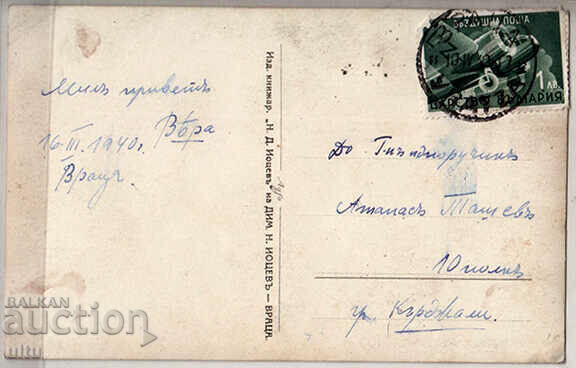 Милъ приветъ
Вѣра
16-III-1940г.
Враца
Изд. книжар. „Н. Д. Йоцевъ" на ДИМ. Н. ЙОЦЕВЪ – ВРАЦА.
ВЪЗДУШНА ПОЩА
1 ЛВ.
ЦАРСТВО БЪЛГАРИЯ
До Г-нъ подпоручикъ
Атанасъ Ташевъ
10 полкъ
гр. Кърджали.
BALKAN
auction
ultu